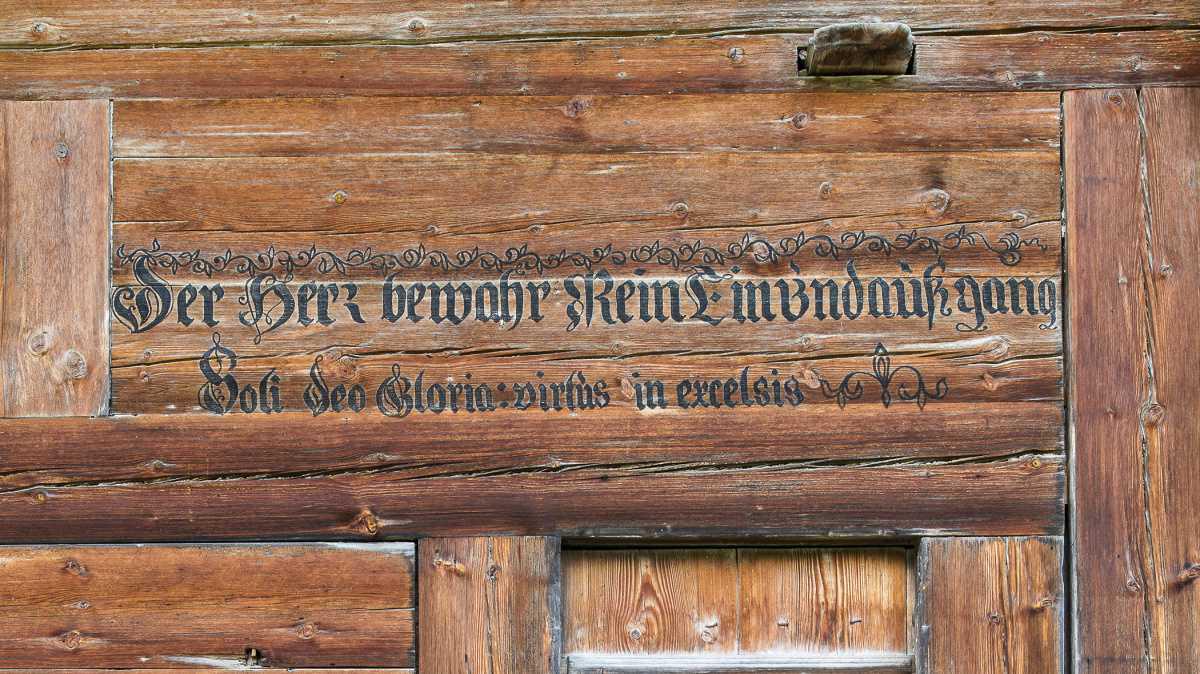 Der Herr bewahr Mein Ein vnd außgang
Soli deo Gloria : virtus in excelsis